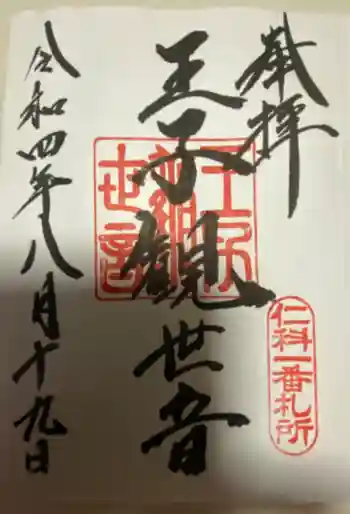 奉拝
王子観世音
令和四年八月十九日
仁科一番札所